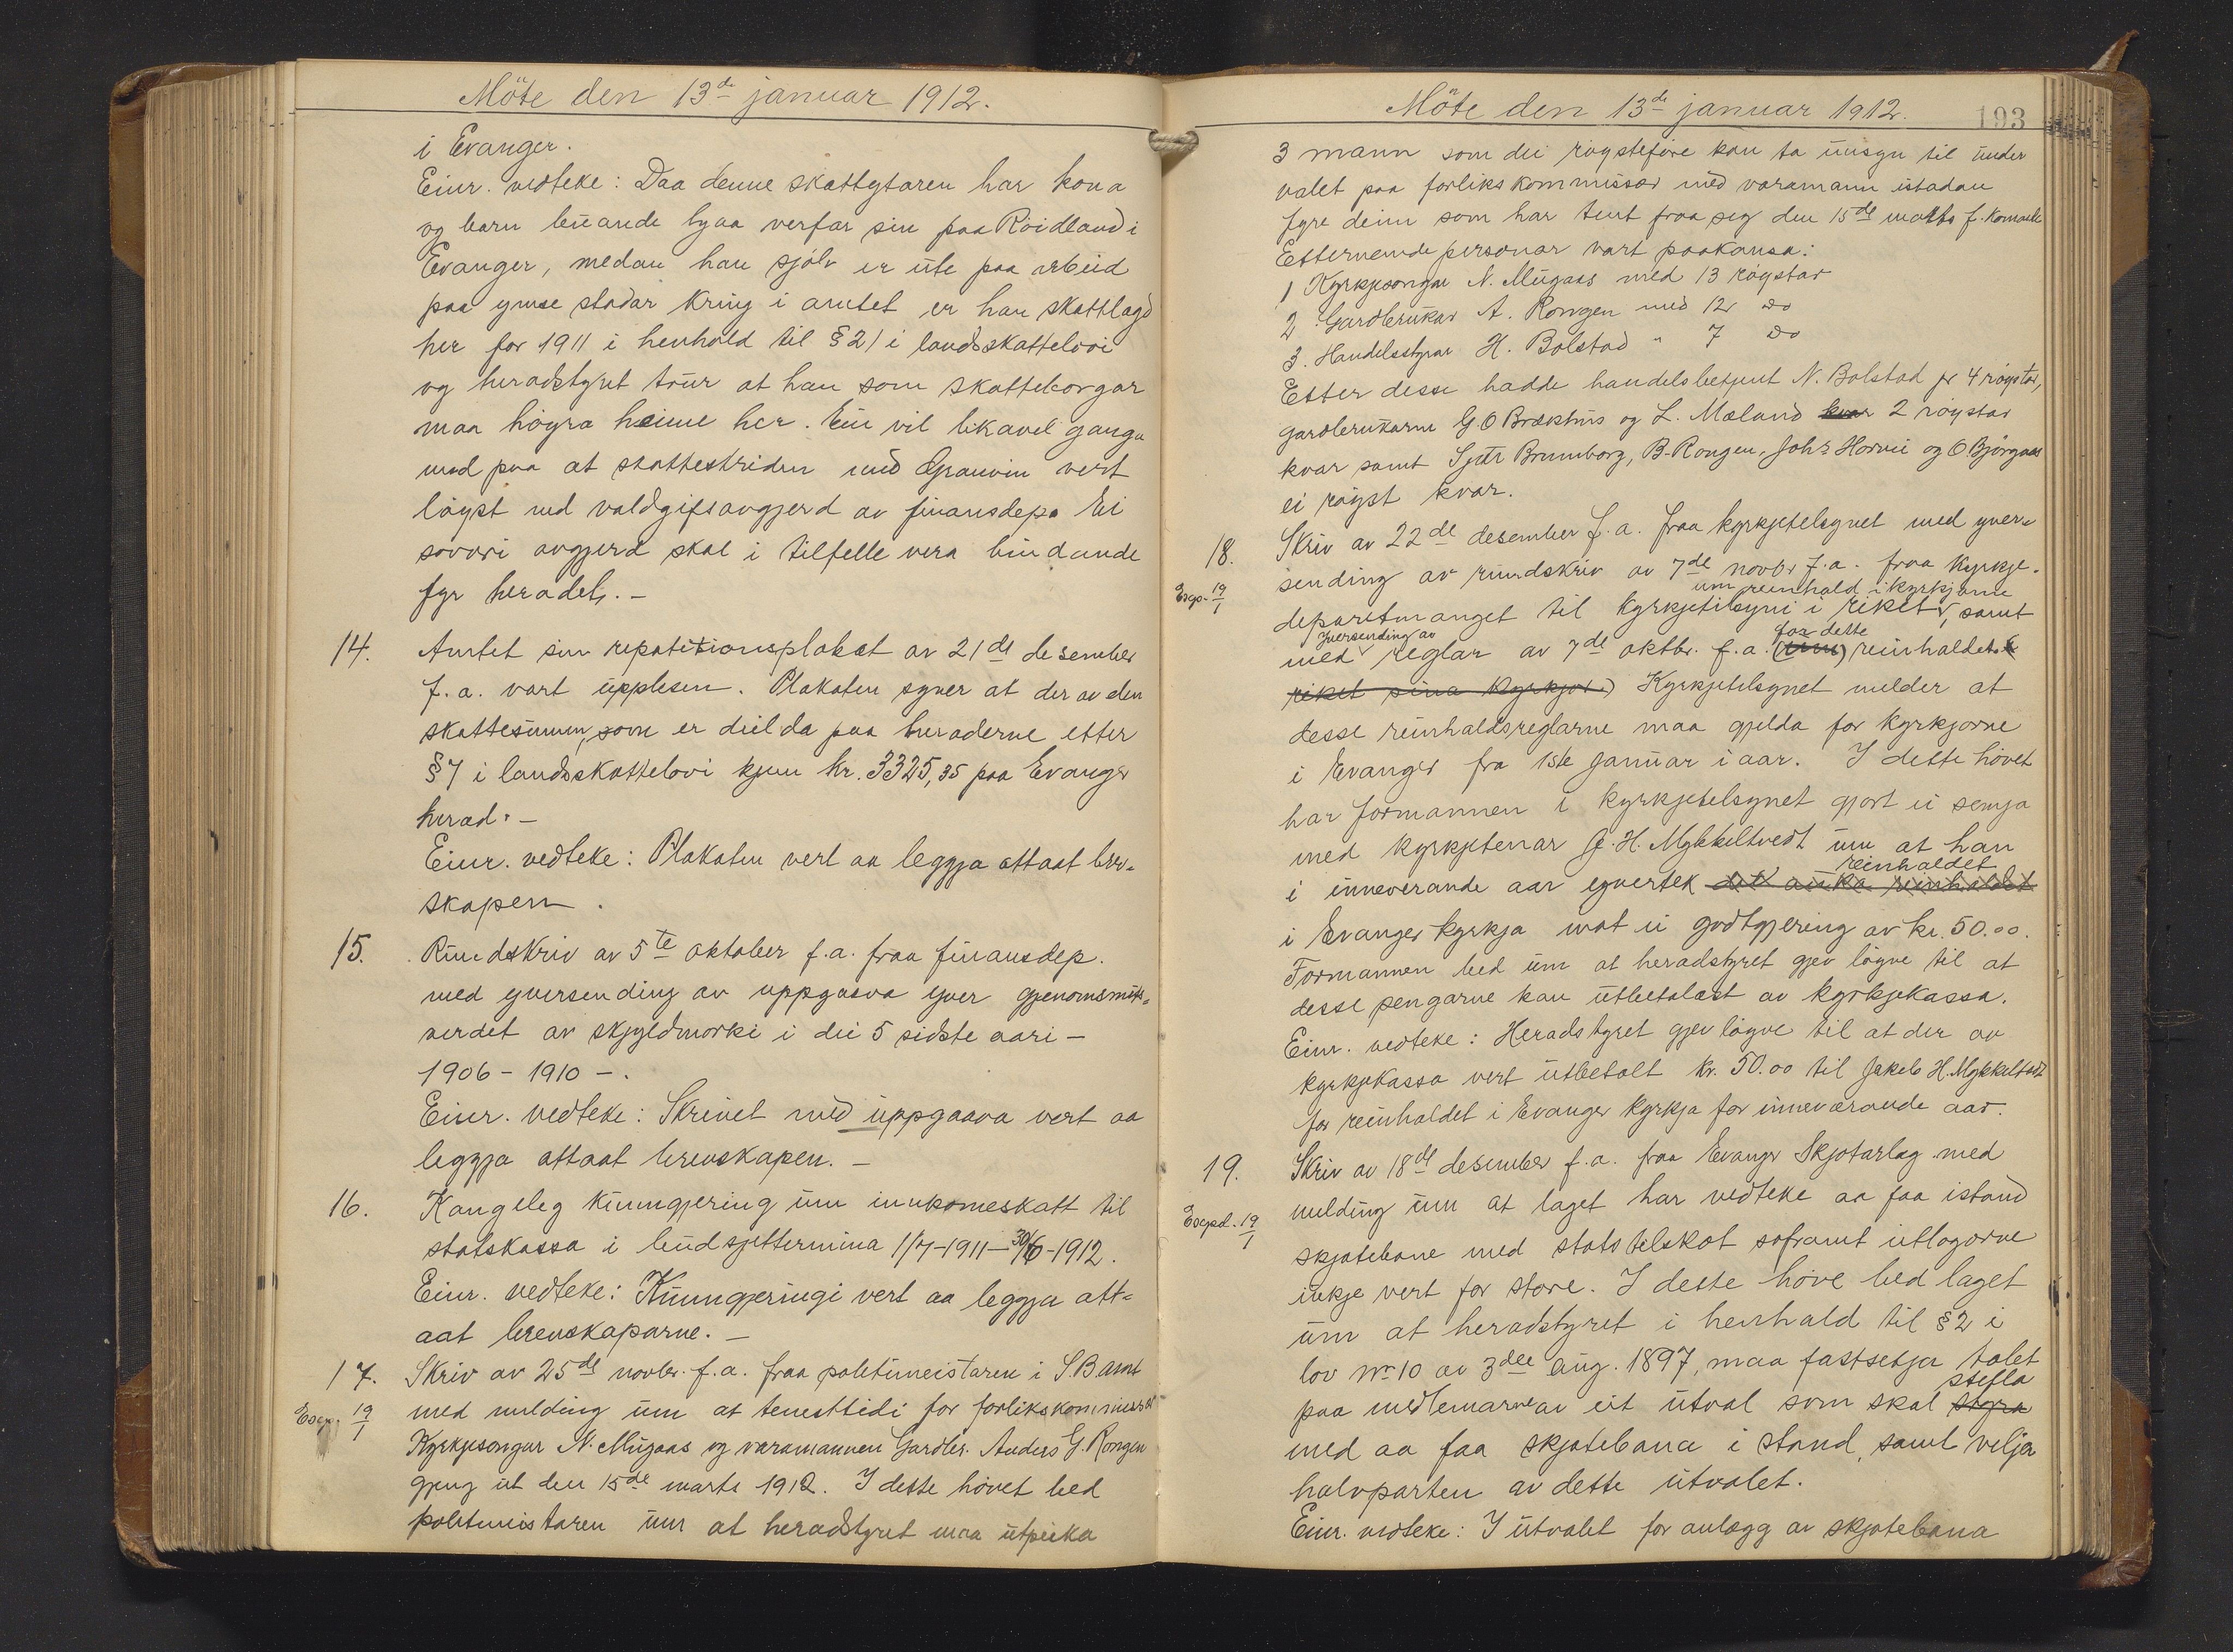 Möte den 13de januar 1912.
i Evanger.
Einr. vedteke: Daa denne skattytaren har kona
og barn buande hjaa verfar sin paa Röidland i
Evanger, medan han sjölv er ute paa arbeid
paa ymse stadar kring i amtet er han skattlagd
her for 1911 i henhold til § 21 i landsskattelovi
og heradstyret trur at han som skatteborgar
maa högra heime her. Ein vil likavel ganga
med paa at skattestriden med Granvin vert
löyst ved valdgiftsavgjerd av finansdep. Ei
sovori avgjerd skal i tilfelle vera bindande
fyr heradet. -
14. Amtet sin repatitionsplakat av 21de desember
f.a. vart upplesen. Plakaten syner at der av den
skattesumm, som er deilda paa heraderne etter
§ 7 i landsskattelovi kjem kr. 3325,35 paa Evanger
herad. -
Einr. vedteke: Plakaten vert aa leggja attaat brev-
skapen.
15. Rundskriv av 5te oktober f.a. fraa finansdep.
med yversending av uppgaava yver gjenomsnits-
verdet av skyldmorki i dei 5 sidste aari -
1906 - 1910 -.
Einr. vedteke: Skrivet med uppgaava vert aa
leggja attaat brevskapen. -
16. Kongeleg kunngjering um innkomeskatt til
statskassa i budsjettermina 1/7-1911-30/6-1912.
Einr. vedteke: Kunngjeringi vert aa leggja att-
aat brevskaparne. -
17. Skriv av 25de novbr. f.a. fraa politimeistaren i S.B.amt
Exp. 19/1 med melding um at tenesttidi for forlikskommissær
Kyrkjesongar N. Mugaas og varamannen Gardbr. Anders G. Rongen
gjeng ut den 15de marts 1912. I dette hövet bed
politimeistaren um at heradstyret maa utpeika
Möte den 13de januar 1912. 193
3 mann som dei röysteföre kan ta umsyn til under
valet paa forlikskommissær med varamann istadan
fyre deim som har tent fraa seg den 15de marts f. komande
Etternemde personar vart paakansa:
1 Kyrkjesongar N. Mugaas med 13 röystar
2 Gardbrukar A. Rongen med 12 do
3. Handelsstyrar H. Bolstad " 7 do
Etter desse hadde handelsbetjent N. Bolstad fr 4 röystar,
gardbrukarne G.O Brækhus og L. Mæland kvar 2 röystar
kvar samt Sjur Brunborg, B. Rongen, Johs Horvei og O. Bjørgaas
ei röyst kvar.
18. Skriv av 22de desember f.a. fraa kyrkjetilsynet med yver-
Exp. 19/1 sending av rundskriv av 7de novbr f.a. fraa kyrkje-
um reinhald i kyrkjorne
departmanget til kyrkjetilsyni i riket, samt
yversending av for dette
med reglar av 7de oktbr. f.a. (um) reinhaldet i
riket sina kyrkjor.) Kyrkjetilsynet melder at
desse reinhaldsreglarne maa gjelda for kyrkjorne
i Evanger fra 1ste Januar i aar. I dette hövet
har formannen i kyrkjetilsynet gjort ei semja
med kyrkjetenar J. H. Mykkeltvedt um at han
reinhaldet
i inneverande aar yvertek det auka reinhaldet
i Evanger kyrkja mot ei godtgjering av kr. 50.00.
Formannen bed um at heradstyret gjev löyve til at
desse pengarne kan utbetalast av kyrkjekassa.
Einr. vedteke: Heradstyret gjev löyve til at der av
kyrkjekassa vert utbetalt kr. 50.00 til Jakob H. Mykkeltvedt
for reinhaldet i Evanger kyrkja for inneværande aar.
19. Skriv av 18de desember f.a. fraa Evanger Skjotarlag med
Exped. 19/1 melding um at laget har vedteke aa faa istand
skjotebane med statstilskot soframt utlogorne
inkje vert for store. I dette höve bed laget
um at heradstyret i henhald til § 2 i
lov No 10 av 3dee aug. 1897, maa fastsetja talet
stella
paa medlemarne av eit utval som skal styra
med aa faa skjotebana i stand, samt velja
halvparten av dette utvalet.
Einr. vedteke: I utvalet for anlegg av skjotebana